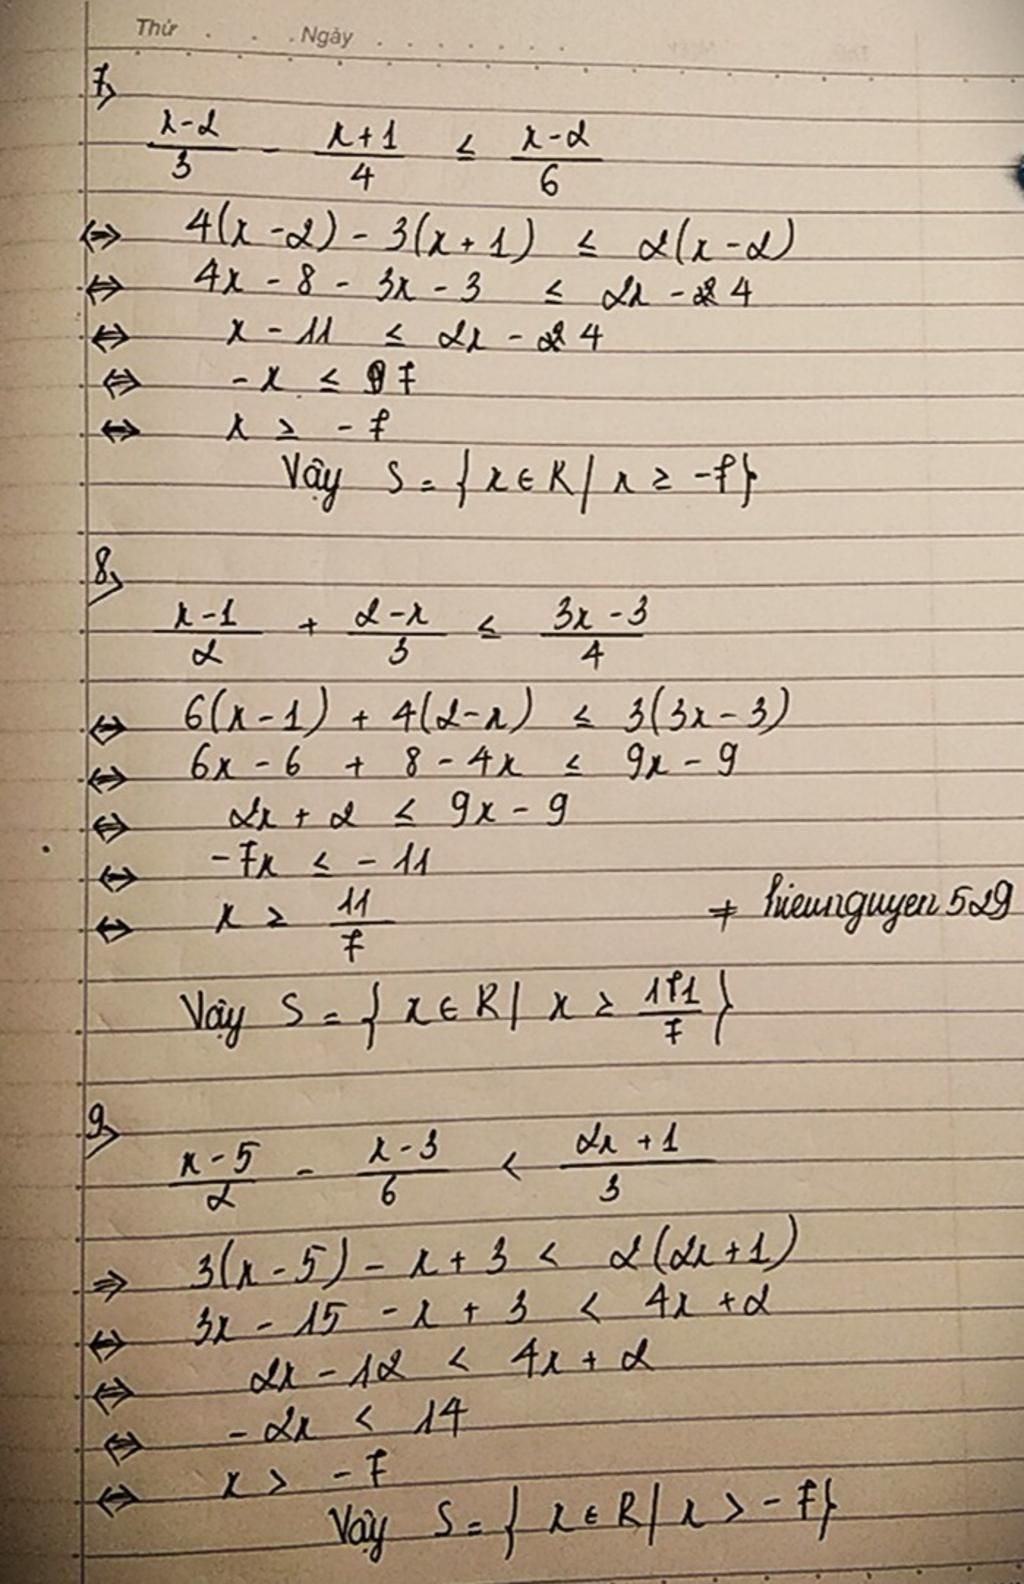 Thứ . . . Ngày . . . . . . .
7,
x-2/3 - x+1/4 ≤ x-2/6
⇔ 4(x-2) - 3(x+1) ≤ 2(x-2)
⇔ 4x - 8 - 3x - 3 ≤ 2x - 4
⇔ x - 11 ≤ 2x - 4
⇔ -x ≤ 7
⇔ x ≥ -7
Vậy S = {x ∈ R / x ≥ -7}
8,
x-1/2 + 2-x/3 ≤ 3x-3/4
⇔ 6(x-1) + 4(2-x) ≤ 3(3x-3)
⇔ 6x - 6 + 8 - 4x ≤ 9x - 9
⇔ 2x + 2 ≤ 9x - 9
⇔ -7x ≤ -11
⇔ x ≥ 11/7
≠ hieunguyen529
Vậy S = {x ∈ R / x ≥ 11/7}
9,
x-5/2 - x-3/6 < 2x+1/3
⇒ 3(x-5) - x + 3 < 2(2x+1)
⇔ 3x - 15 - x + 3 < 4x + 2
⇔ 2x - 12 < 4x + 2
⇔ -2x < 14
⇔ x > -7
Vậy S = {x ∈ R / x > -7}